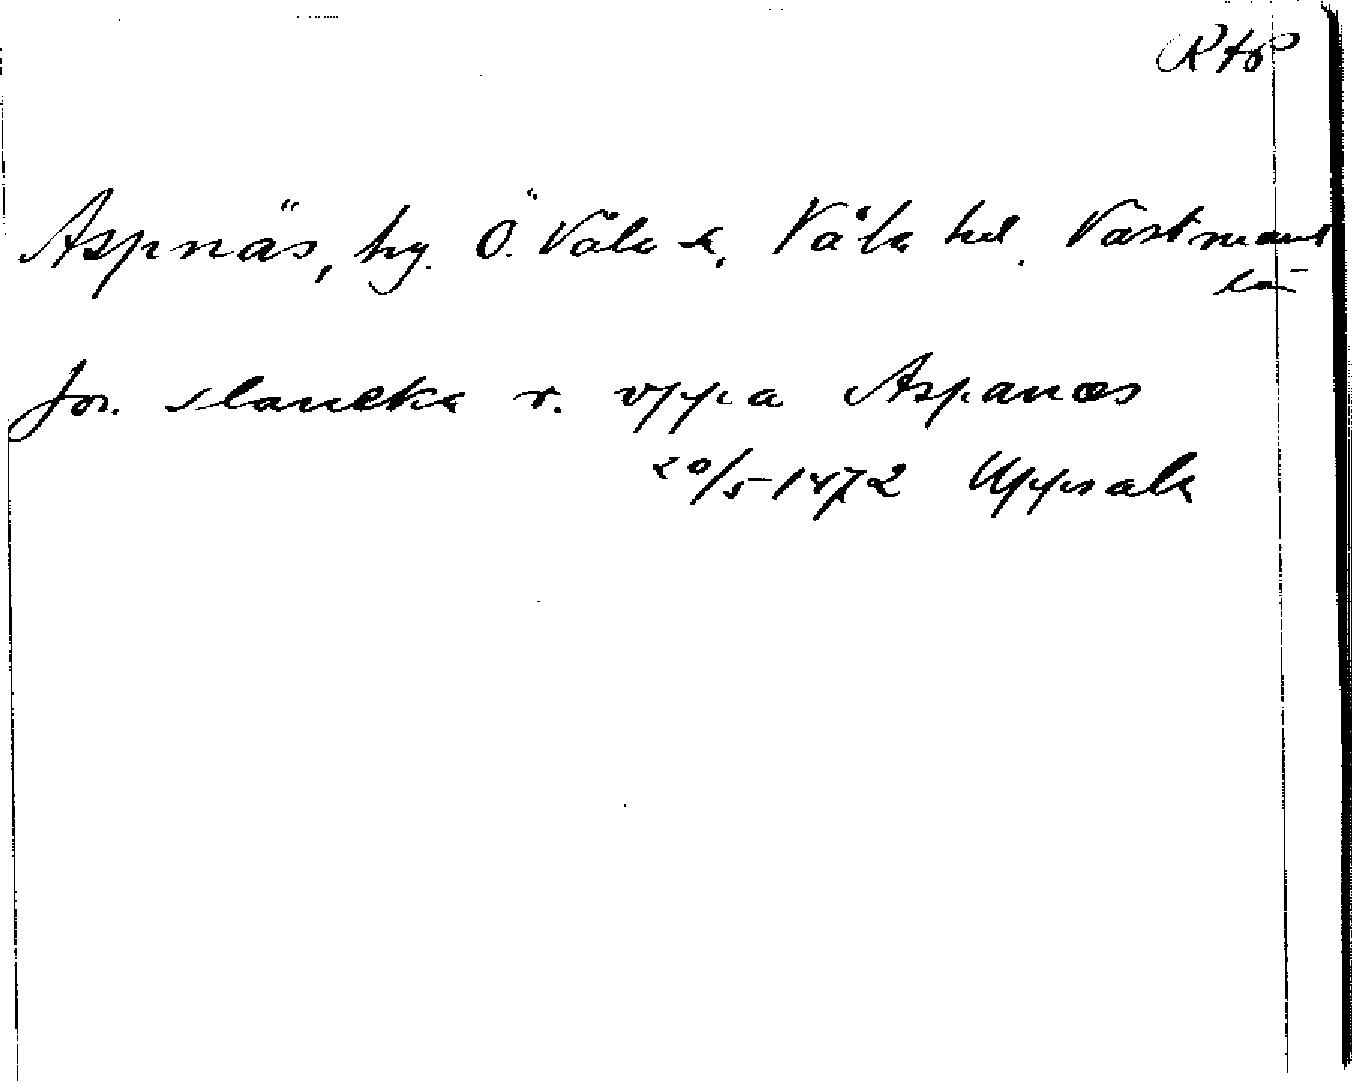 RAP
Aspnäs, hg. Ö. Våla s., Våla hd. Västmanl
län
Jos. slaucka v. uppa Aspanæs
20/5-1472 Uppsala